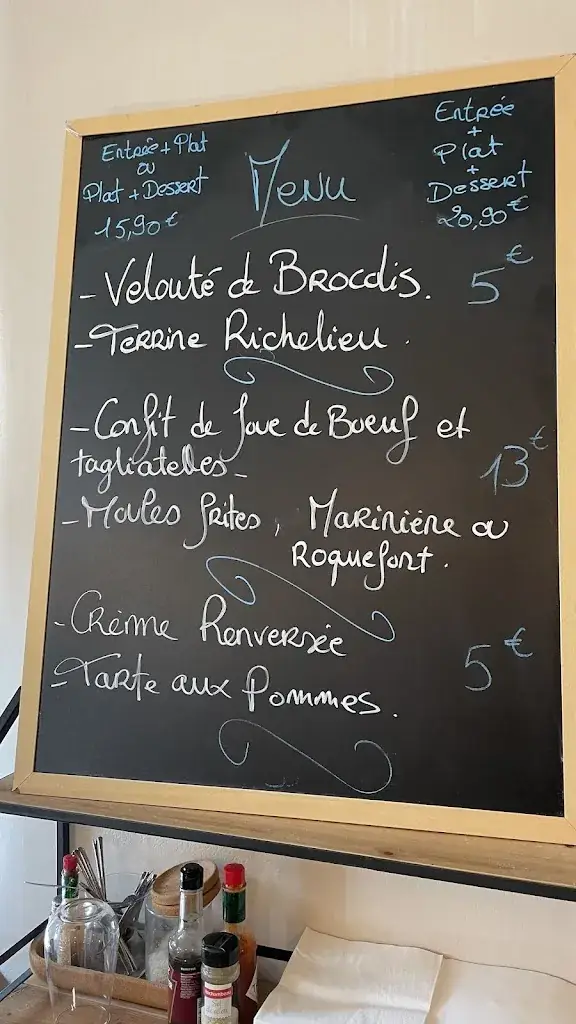 Entrée + Plat
ou
Plat + Dessert
15,90€
Menu
Entrée
+
Plat
+
Dessert
20,90€
- Velouté de Brocolis. 5€
- Terrine Richelieu.
- Confit de Joue de Boeuf et
tagliatelles - 13€
- Moules frites, Marinière ou
Roquefort.
- Crème Renversée 5€
- Tarte aux Pommes.